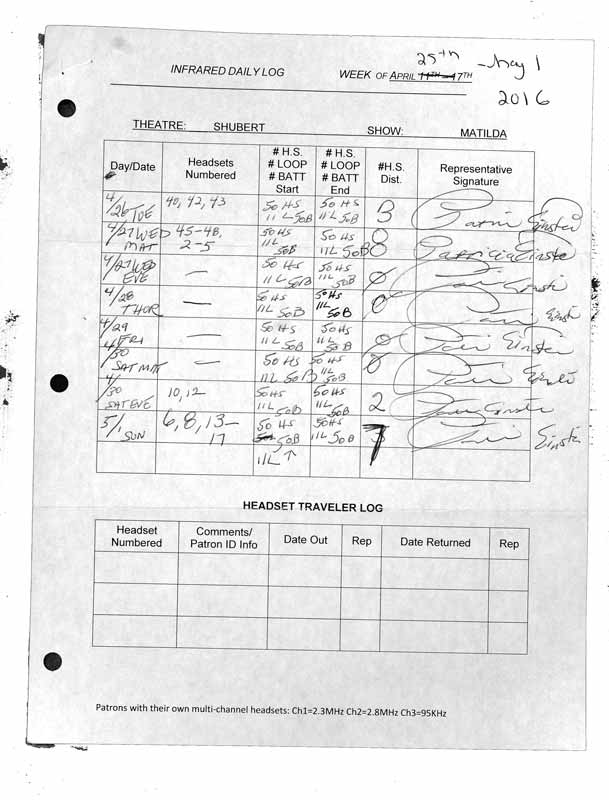 25th - May 1
INFRARED DAILY LOG WEEK OF APRIL 11TH - 17TH
2016
THEATRE: SHUBERT SHOW: MATILDA
Day/Date Headsets Numbered # H.S. # LOOP # BATT Start # H.S. # LOOP # BATT End #H.S. Dist. Representative Signature
4/26 TUE 40, 42, 43 50 HS 11 L 50B 50 HS 11L 50B 3
4/27 WED MAT 45-48, 2-5 50 HS 11L 50B 50 HS 11L 50B 8 Patricia Einstein
4/27 WED EVE — 50 HS 11L 50B 50 HS 11L 50B 0
4/28 THUR — 50 HS 11L 50B 50 HS 11L 50B 0
4/29 FRI — 50 HS 11L 50B 50 HS 11L 50B 0
4/30 SAT MAT — 50 HS 11L 50B 50 HS 11L 50B 0
4/30 SAT EVE 10, 12 50 HS 11L 50B 50 HS 11L 50B 2
5/1 SUN 6, 8, 13-17 50 HS 50B 11L ↑ 50 HS 11L 50B 7
HEADSET TRAVELER LOG
Headset Numbered Comments/ Patron ID Info Date Out Rep Date Returned Rep
Patrons with their own multi-channel headsets: Ch1=2.3MHz Ch2=2.8MHz Ch3=95KHz